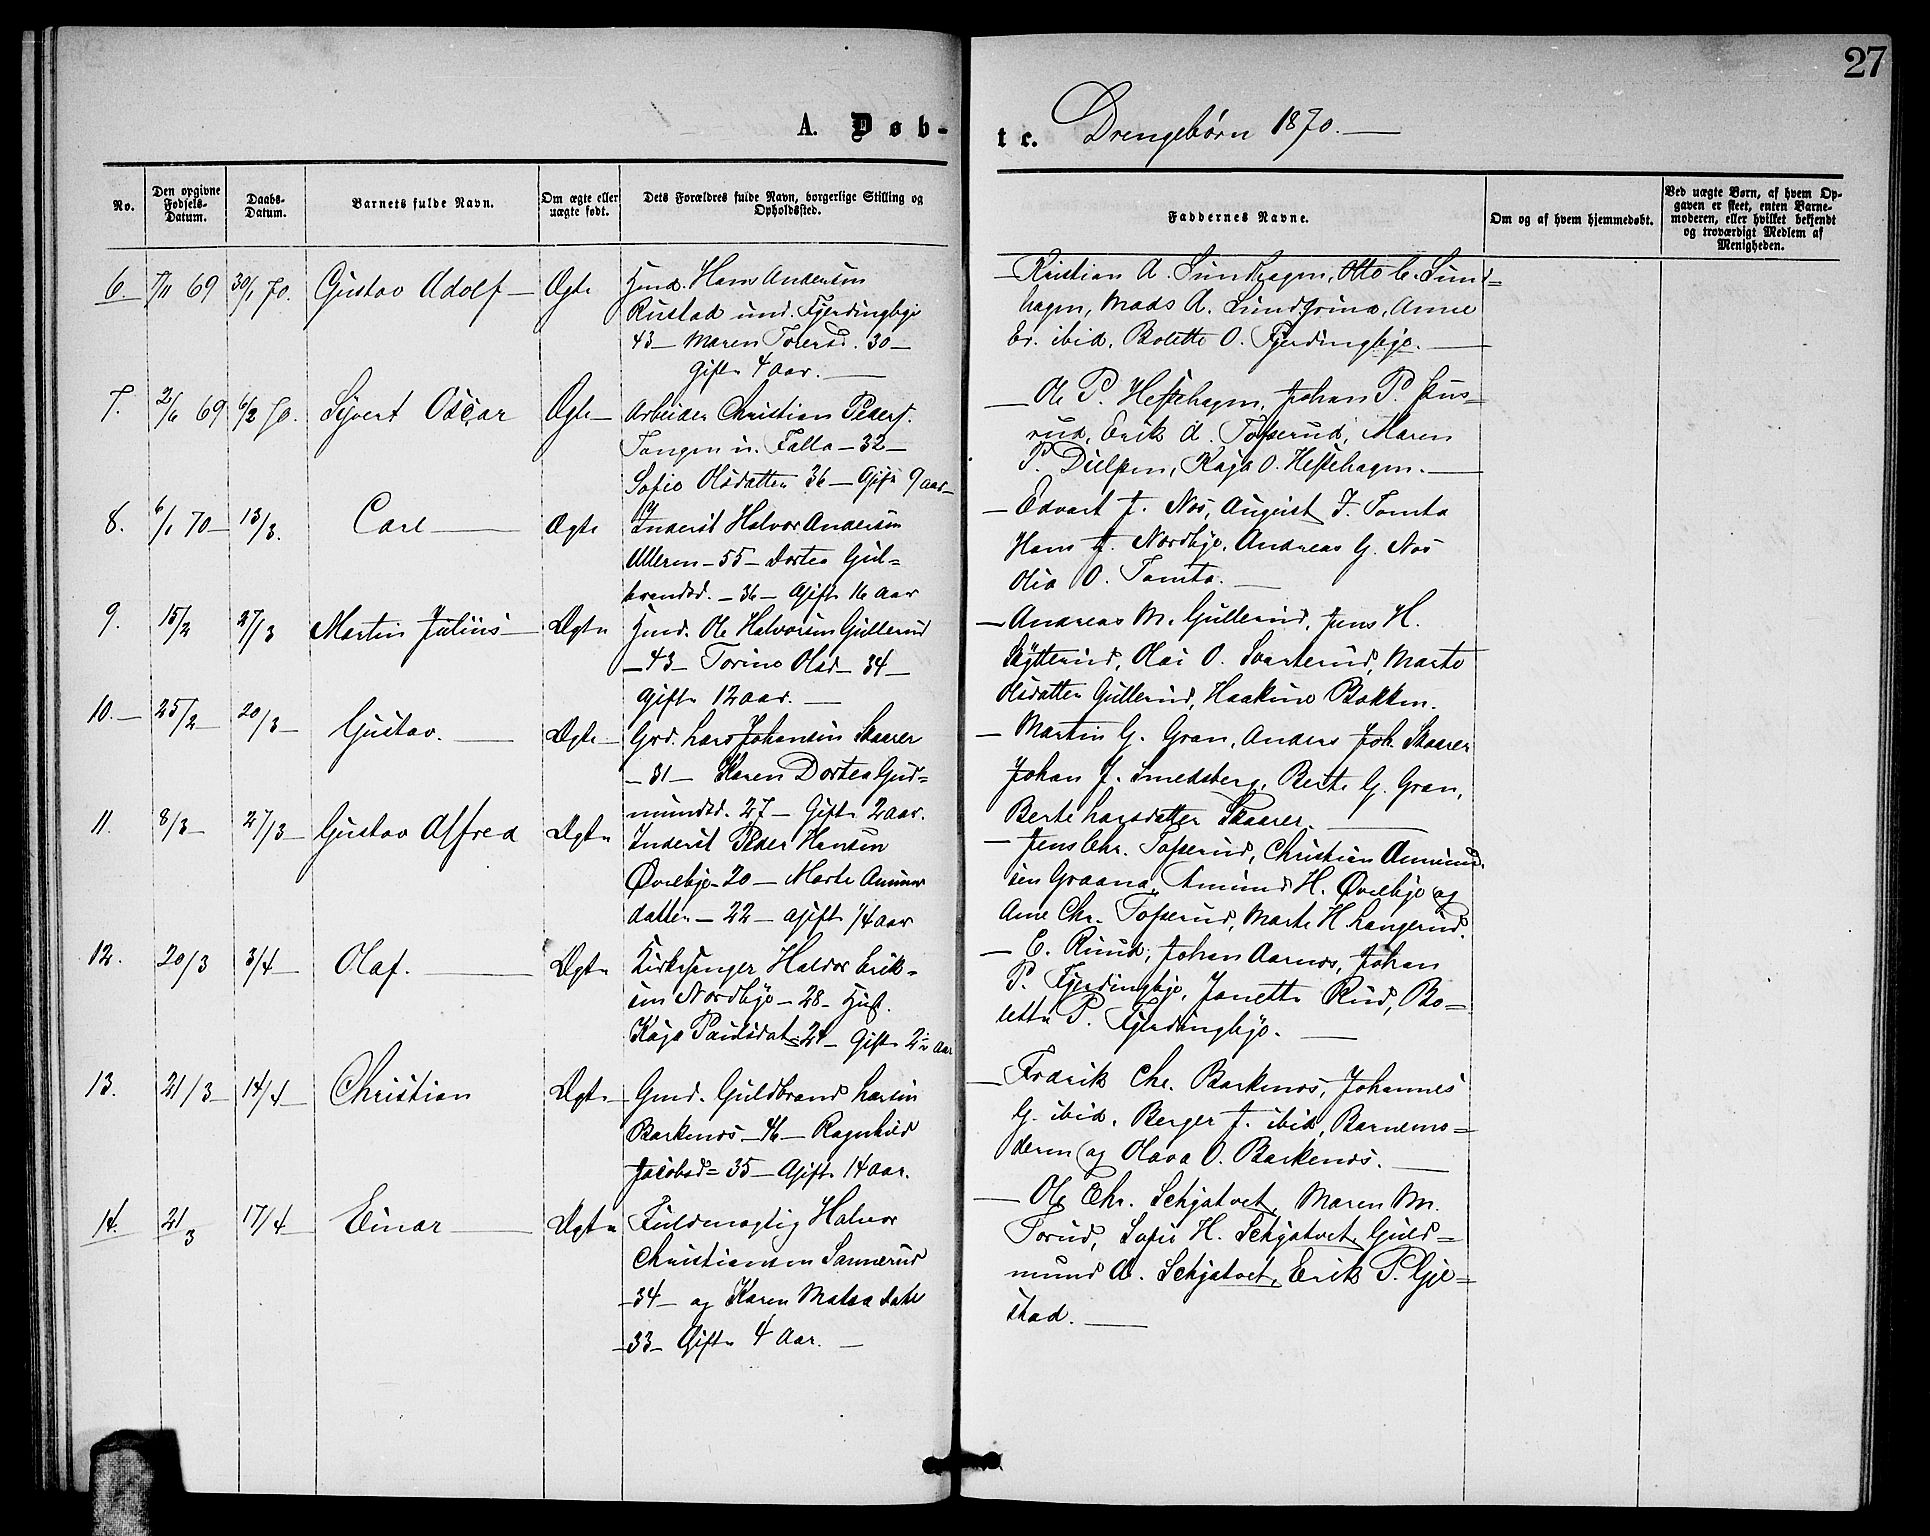 27
A. Døb-
te. Drengebørn 1870.
No.
Den opgivne Fødsels-Datum.
Daabs-Datum.
Barnets fulde Navn.
Om ægte eller uægte født.
Dets Forældres fulde Navn, borgerlige Stilling og Opholdssted.
Faddernes Navne.
Om og af hvem hjemmedøbt.
Ved uægte Børn, af hvem Opgaven er skeet, enten Barnemoderen, eller hvilket bekjendt og troværdigt Medlem af Menigheden.
6. 7/11 69 30/1 70. Gustav Adolf Ægte Hmd. Hans Andersen
Rustad und. Fjerdingbye
43 – Maren Torersd. 30 –
Gifte 4 aar.
Kristian A. Sundhagen, Otto C. Sund=
hagen, Mads A. Anne
ibid, Bolette O. Fjerdingbye.
7. 2/6 69 6/2 70. Syvert Oscar Ægte Arbeider Christian Peders.
Tangen u. Falla – 32 –
Sofie Olsdatter 36 – Gift 9 aar
Ole P. Hestehagen, Johan P.
rud, Erik A. Tofserud, Maren
P. Kaja O. Hestehagen.
8. 6/1 70 13/3. Carl Ægte Inderst Halvor Andersen
Ulleren – 55 – Dortea Gul=
brandsd. – 36 – Gifte 16 aar
Edvart J. Nos, August J. Tomta
Hans J. Nordbye, Andreas G. Nos
Olia O. Tomta.
9. 15/2 27/3 Martin Julius Ægte Hmd. Ole Halvorsen Gullerud
– 43 – Torine Olsd – 34 –
Gifte 12 aar.
Andreas M. Gullerud, Jens H.
Skytterud, Olai O. Svarterud, Marte
Olsdatter Gullerud, Haakine Bakken.
10. 25/2 20/3 Gustav. Ægte Grd. Lars Johansen Skaarer
– 31 – Karen Dortea Gud=
mundsd. 27 – Gifte 2 aar.
Martin G. Gran, Anders Joh. Skaarer
Johan J. Smedsberg, Berte G. Gran,
Berte Larsdatter Skaarer.
11. 8/3 27/3 Gustav Alfred Ægte Inderst Peder Hansen
Øvrebye – 20 – Marte
datter – 22 – Gift 1/4 aar
Jens Chr. Tofserud, Christian
sen Graana, Amund H. Øvrebye og
Ane Chr. Tofserud, Marte H Langerud.
12. 20/3 3/4 Olaf. Ægte Kirkesanger Halvor Erik=
sen Nordbye – 28 – Hust.
Kaja Paulsdat 24 – Gifte 2 aar
C. Ruud, Johan Aarnes, Johan
P. Fjerdingbye, Janette Rud, Bo=
lette P. Fjerdingbye.
13. 21/3 14/4 Christian Ægte Gmd. Guldbrand Larsen
Barkenæs – 46 – Ragnhild
Jacobsd= 35 – Gifte 14 aar.
Fredrik Chr. Barkenæs, Johannes
G. ibid, Berger J. ibid, Barnemo=
deren og Olava O. Barkenæs.
14. 21/3 17/4 Einar Ægte Fuldmægtig Halvor
Christiansen Sannerud
– 34 – og Karen
– 33 – Gifte 4 aar.
Ole Chr. Schjatvet, Maren M.
Torud, Sofie H. Schjatvet, Guld=
mund A. Schjatvet, Erik P. Gje=
stad.